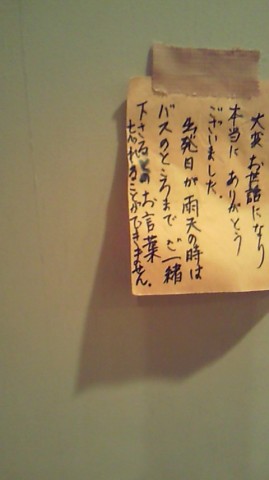 大変 お世話になり
本当に ありがとう
ございました。
出発日が雨天の時は
バスのところまで ご一緒
下さるとの お言葉
忘れることができません。